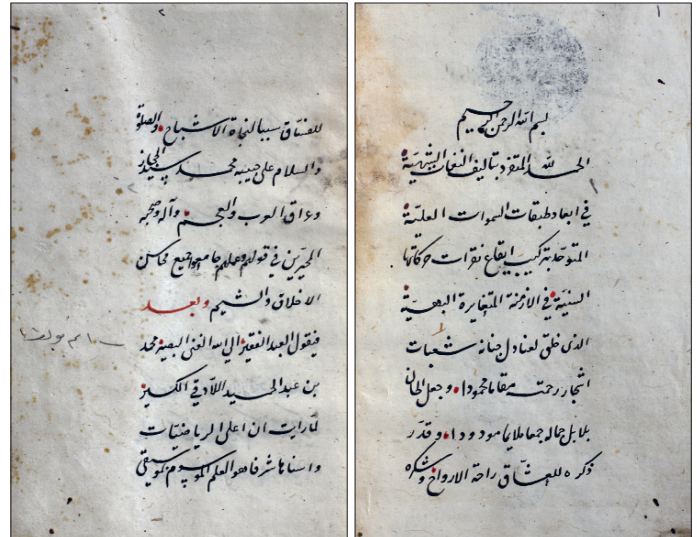 بسم الله الرحمن الرحيم
الحمد لله المتفرد بتاليف النغمات الشهية
في ابعاد طبقات السموات العلية
المتوحد بتركيب ايقاع نقرات حركاتها
السنية في الازمنة المتغايرة البهية
الذى خلق لعنادل جنانه شعبات
اشجار رحمته مقاما محمودا وجعل الحان
بلابل جماله جمعا ملايما مودودا وقدر
ذكره للعشاق راحة الارواح وشكره
للفساق سببا لنجاة الاشباح والصلوة
والسلام على حبيبه محمد سيد الحجاز
وعراق العرب والعجم وآله وصحبه
المحيرين في قولهم وعملهم جامعوا جميع محاسن
الاخلاق والشيم وبعد
فيقول العبد الفقير الي الله الغنى البصير محمد
بن عبد الحميد اللاذقي الكسير
لما رايت ان اعلى الرياضيات
واسناها شرفا هو العلم الموسوم بموسيقى